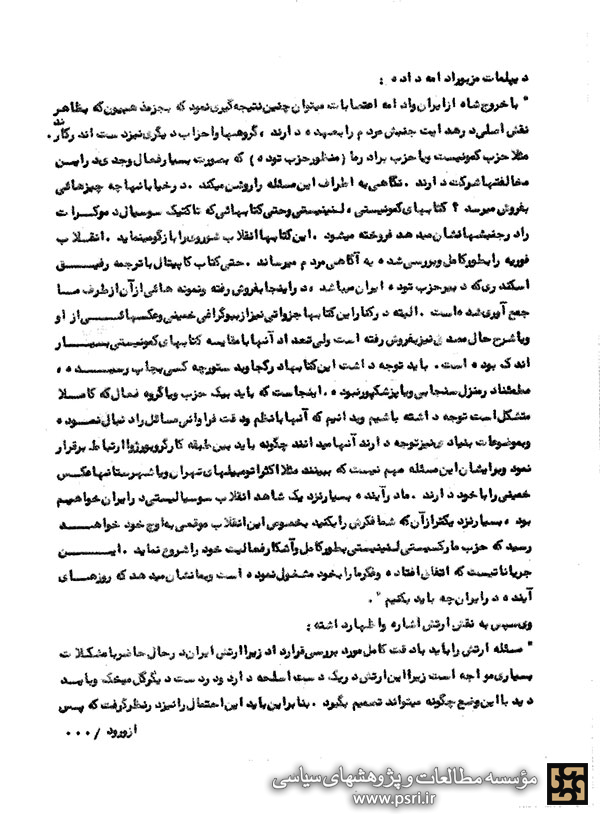 دیپلمات مزبور ادامه داده :
" با خروج شاه از ایران و ادامه اعتصابات میتوان چنین نتیجه گیری نمود که بجز مذهبیون که بظاهر
نقش اصلی در هدایت جنبش مردم را بعهده دارند ، گروهها و احزاب دیگری نیز دست اندرکارند .
مثلا حزب کمونیست و یا حزب برادر ما ( منظور حزب توده ) که بصورت بسیار فعال و جدی در این
مخالفتها شرکت دارند . نگاهی به اطراف این مسئله را روشن میکند . در خیابانها چه چیزهائی
بفروش میرسد ؟ کتابهای کمونیستی ، لنینیستی و حتی کتابهائی که تاکتیک سوسیال دموکرات
را در جنبشها نشان میدهد فروخته میشود . این کتابها انقلاب شوروی را بازگو مینماید . انقلاب
فوریه را بطور کامل و بررسی شده به آگاهی مردم میرساند . حتی کتاب کاپیتال با ترجمه رفیق
اسکندری که دبیر حزب توده ایران میباشد ، در اینجا بفروش رفته و نمونه هائی از آن از طرف ما
جمع آوری شده است . البته در کنار این کتابها جزواتی نیز از بیوگرافی خمینی و عکسهائی از او
و یا شرح حال مصدق نیز بفروش رفته است ولی تعداد آنها با مقایسه کتابهای کمونیستی بسیار
اندک بوده است . باید توجه داشت این کتابها در کجا و بدستور چه کسی بچاپ رسیده ،
مطمئنا در منزل سنجابی و یا پزشکپور نبوده . اینجاست که باید بیک حزب و یا گروه فعال که کاملا
متشکل است توجه داشته باشیم و بدانیم که آنها با نظم و دقت فراوان مسائل را دنبال نموده
و بموضوعات بنیادی نیز توجه دارند آنها میدانند چگونه باید بین طبقه کارگر و بورژوا ارتباط برقرار
نمود و برایشان این مسئله مهم نیست که ببینند مثلا اکثر اتومبیلهای تهران و یا شهرستانها عکس
خمینی را با خود دارند . ما در آینده بسیار نزد یک شاهد انقلاب سوسیالیستی در ایران خواهیم
بود ، بسیار نزدیکتر از آن که شما فکرش را بکنید بخصوص این انقلاب موقعی به اوج خود خواهد
رسید که حزب مارکسیستی لنینیستی بطور کامل و آشکار فعالیت خود را شروع نماید . این
جریاناتیست که اتفاق افتاده و فکر ما را بخود مشغول نموده است و بما نشان میدهد که روزهای
آینده در ایران چه باید بکنیم " .
وی سپس به نقش ارتش اشاره و اظهار داشته :
" مسئله ارتش را باید با دقت کامل مورد بررسی قرار داد زیرا ارتش ایران در حال حاضر با مشکلات
بسیاری مواجه است زیرا این ارتش در یک دست اسلحه دارد و در دست دیگر گل میخک و باید
دید با این وضع چگونه میتواند تصمیم بگیرد . بنابراین باید این احتمال را نیز در نظر گرفت که پس
از ورود / ۰۰۰
مؤسسه مطالعات و پژوهشهای سیاسی
www.psri.ir